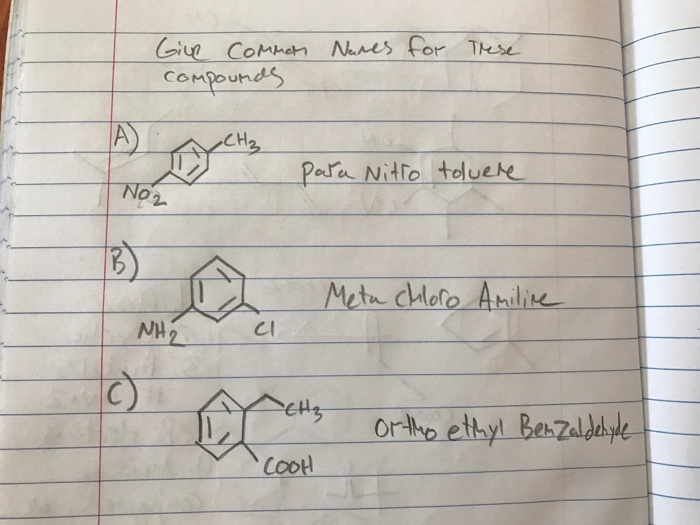 Give Common Names for These
Compounds
A)
CH3
NO2
para Nitro toluene
B)
NH2
Cl
Meta chloro Aniline
C)
CH3
COOH
ortho ethyl Benzaldehyde